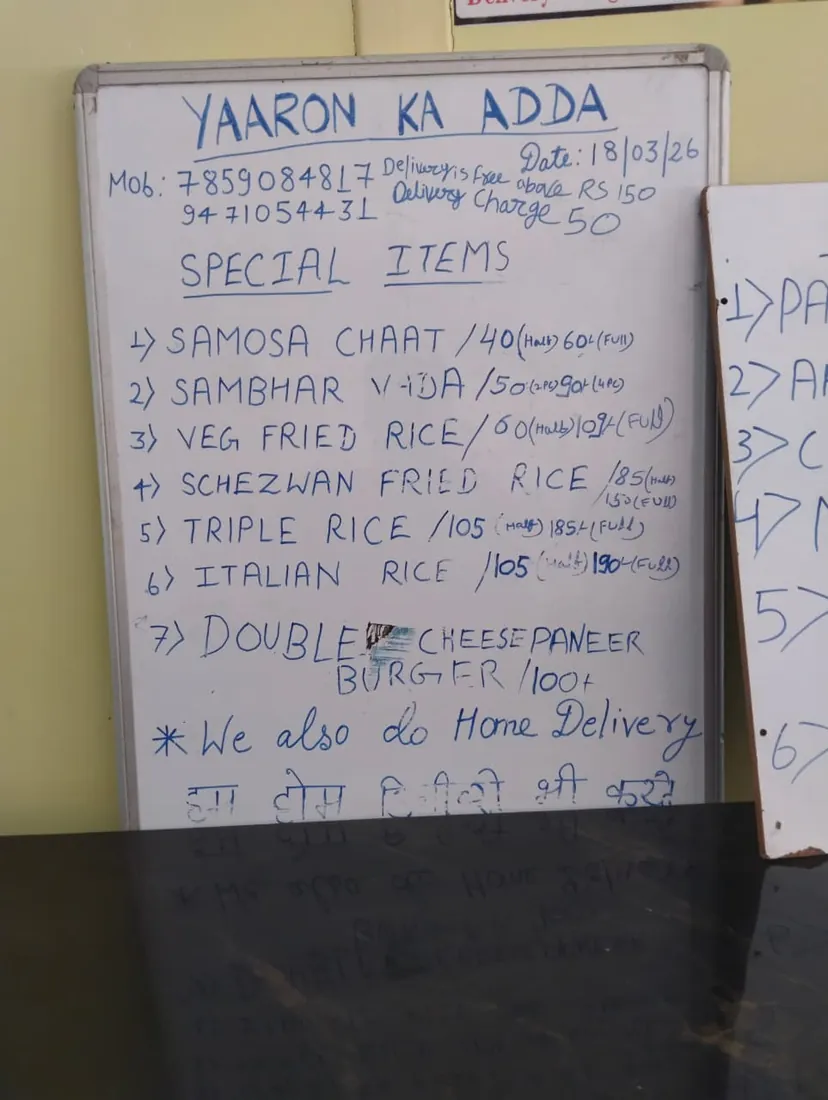 YAARON KA ADDA
Date: 18/03/26
Mob: 7859084817 Delivery is free above RS 150
9471054431 Delivery Charge 50
SPECIAL ITEMS
1) SAMOSA CHAAT /40(Half) 60/-(Full)
2) SAMBHAR VADA /50(2PC) 90/-(4PC)
3) VEG FRIED RICE/ 60(Half) 109/-(FUll)
4) SCHEZWAN FRIED RICE /85(Half)
/150(FUll)
5) TRIPLE RICE /105 (Half) 185/-(FUll)
6) ITALIAN RICE /105 (Half) 190/-(Full)
7) DOUBLE CHEESE PANEER
BURGER /100/-
* We also do Home Delivery
हम होम डिलीवरी भी करते
1) PA
2) A
3) C
4)
5)
6)